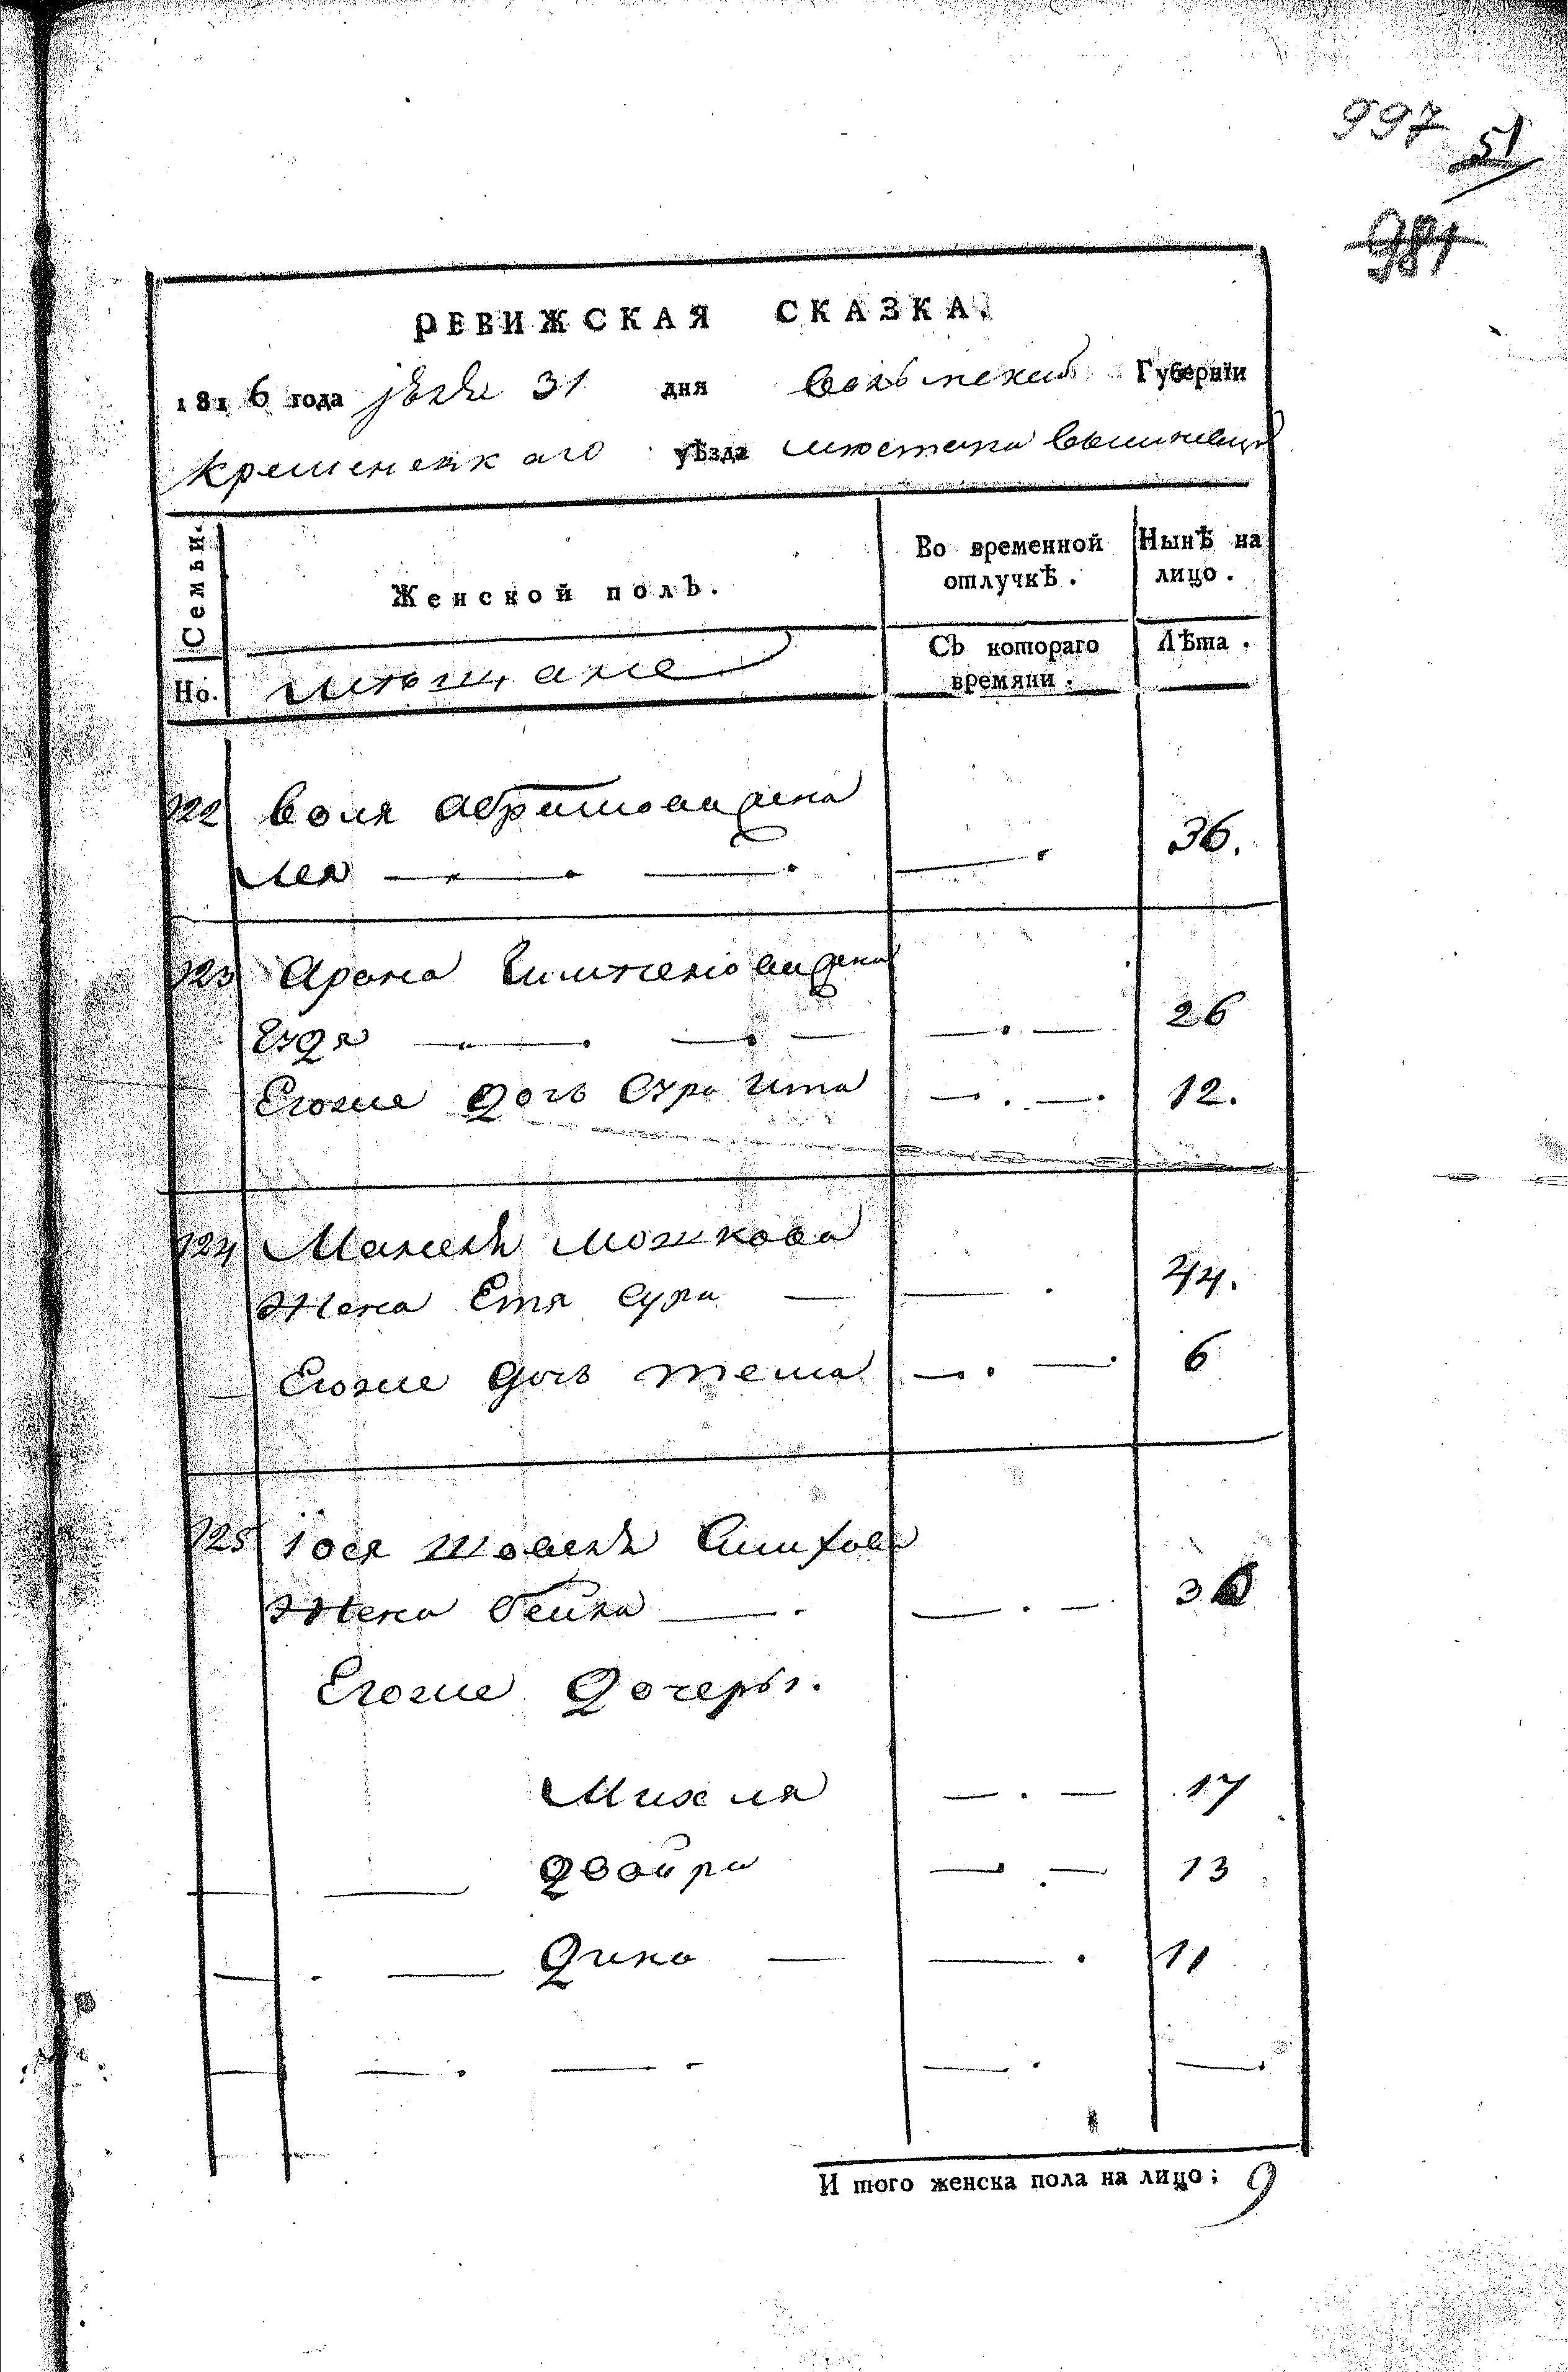 997
51
981
РЕВИЖСКАЯ СКАЗКА.
1816 года 31 дня Волынской Губерніи
Кременецкаго уѣзда мѣстечка Вышневца
Семьи. Женской полъ. Во временной отлучкѣ. Нынѣ на лицо.
Но. мѣщане Съ котораго времяни. Лѣта.
122 Воля Абрамовича жена
Лея 36.
123 Арона жена
26
Егоже дочь Сура Ита 12.
124 Мошкова
жена Етя Сура 44.
Егоже дочь 6
125 Іося
жена Бейла
Егоже дочеры.
Михля 17
Двойра 13
Дина 11
И того женска пола на лицо; 9